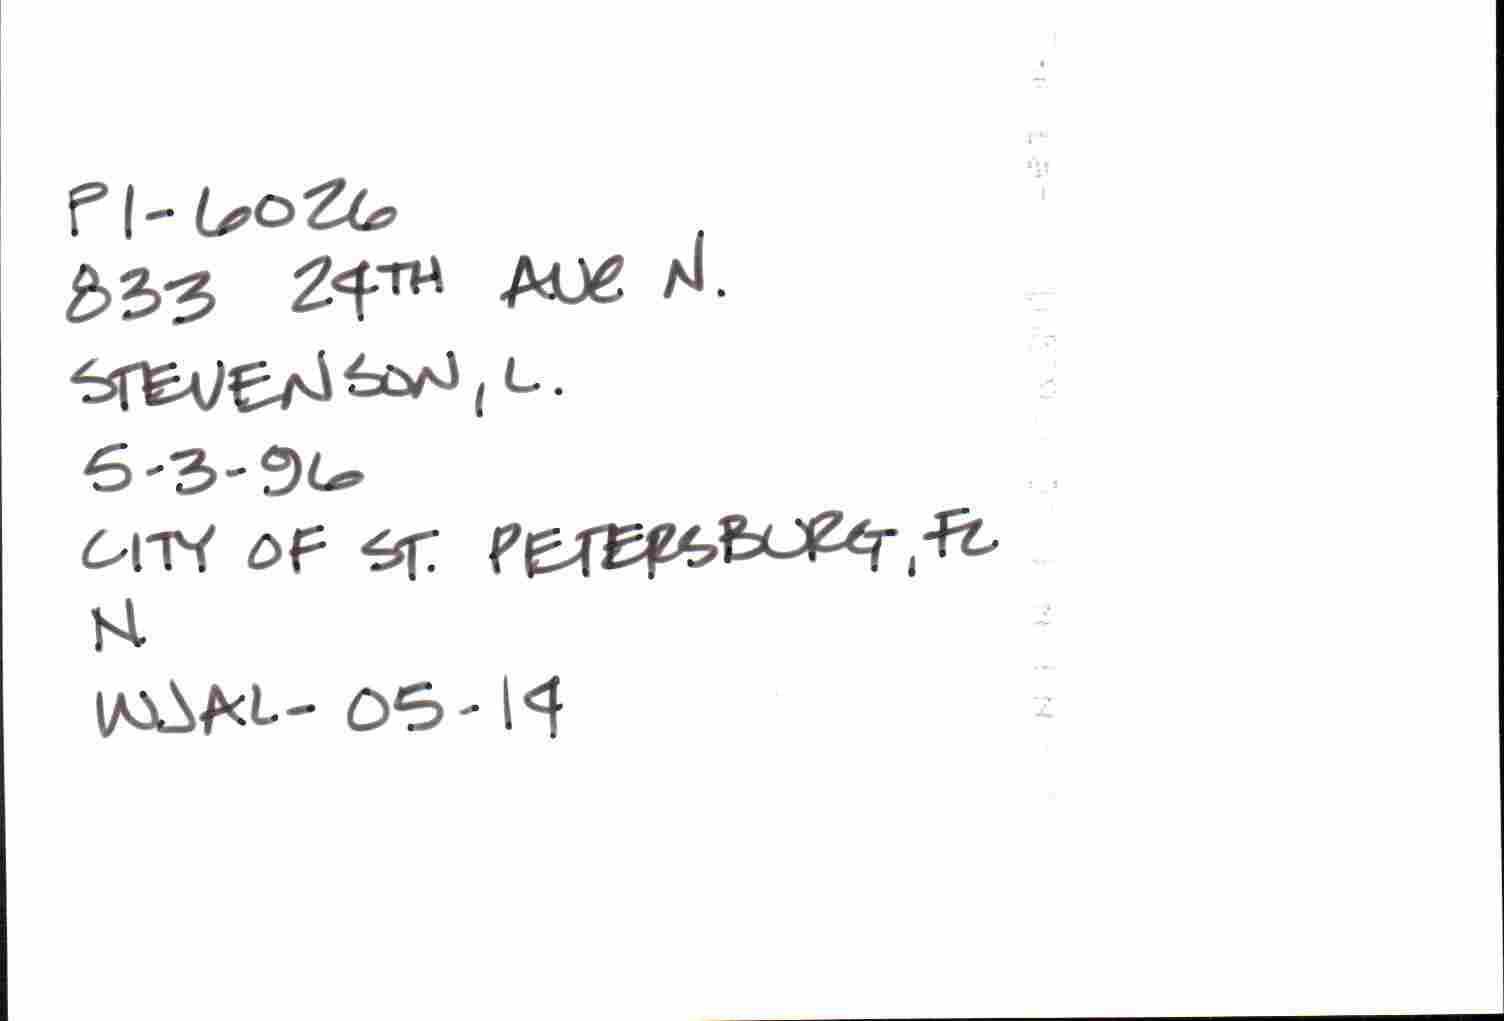 PI-6026
833 24TH AVE N.
STEVENSON, L.
5-3-96
CITY OF ST. PETERSBURG, FL
N
WJAL-05-14